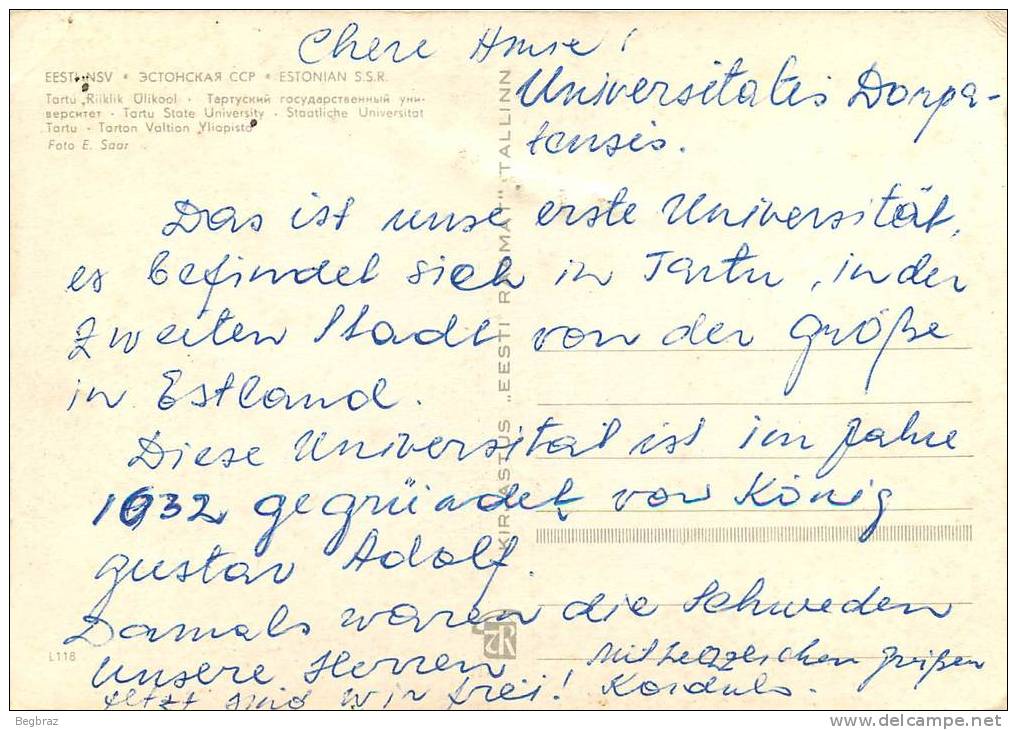 Chere Anne!
EESTI NSV • ЭСТОНСКАЯ ССР • ESTONIAN S.S.R.
Tartu Riiklik Ülikool · Тартуский государственный уни-
верситет · Tartu State University · Staatliche Universität
Tartu · Tarton Valtion Yliopisto
Foto E. Saar
Universitatis Dorpa-
tensis.
Das ist unse erste Universität,
es befindet sich in Tartu, in der
zweiten Stadt von der Größe
in Estland.
Diese Universität ist im Jahre
1632 gegründet von König
Gustav Adolf.
Damals waren die Schweden
unsere Herren
Jetzt sind wir frei!
Mit herzlichen Grüßen
KIRJASTUS „EESTI RAAMAT" · TALLINN
L118
Begbraz
delcampe.net